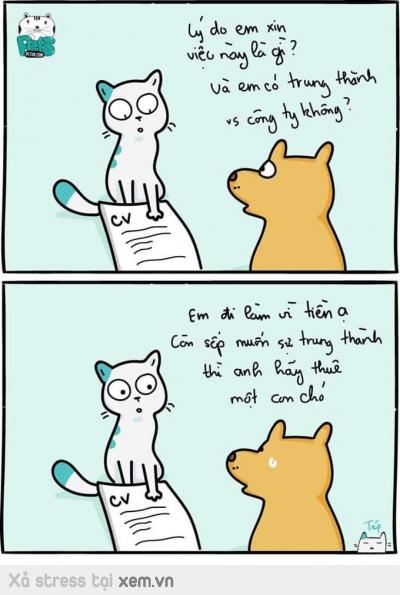 PETS
Lý do em xin
việc này là gì?
Và em có trung thành
vs công ty không?
CV
Em đi làm vì tiền ạ
Còn sếp muốn sự trung thành
thì anh hãy thuê
một con chó
CV
Tép
Xả stress tại xem.vn